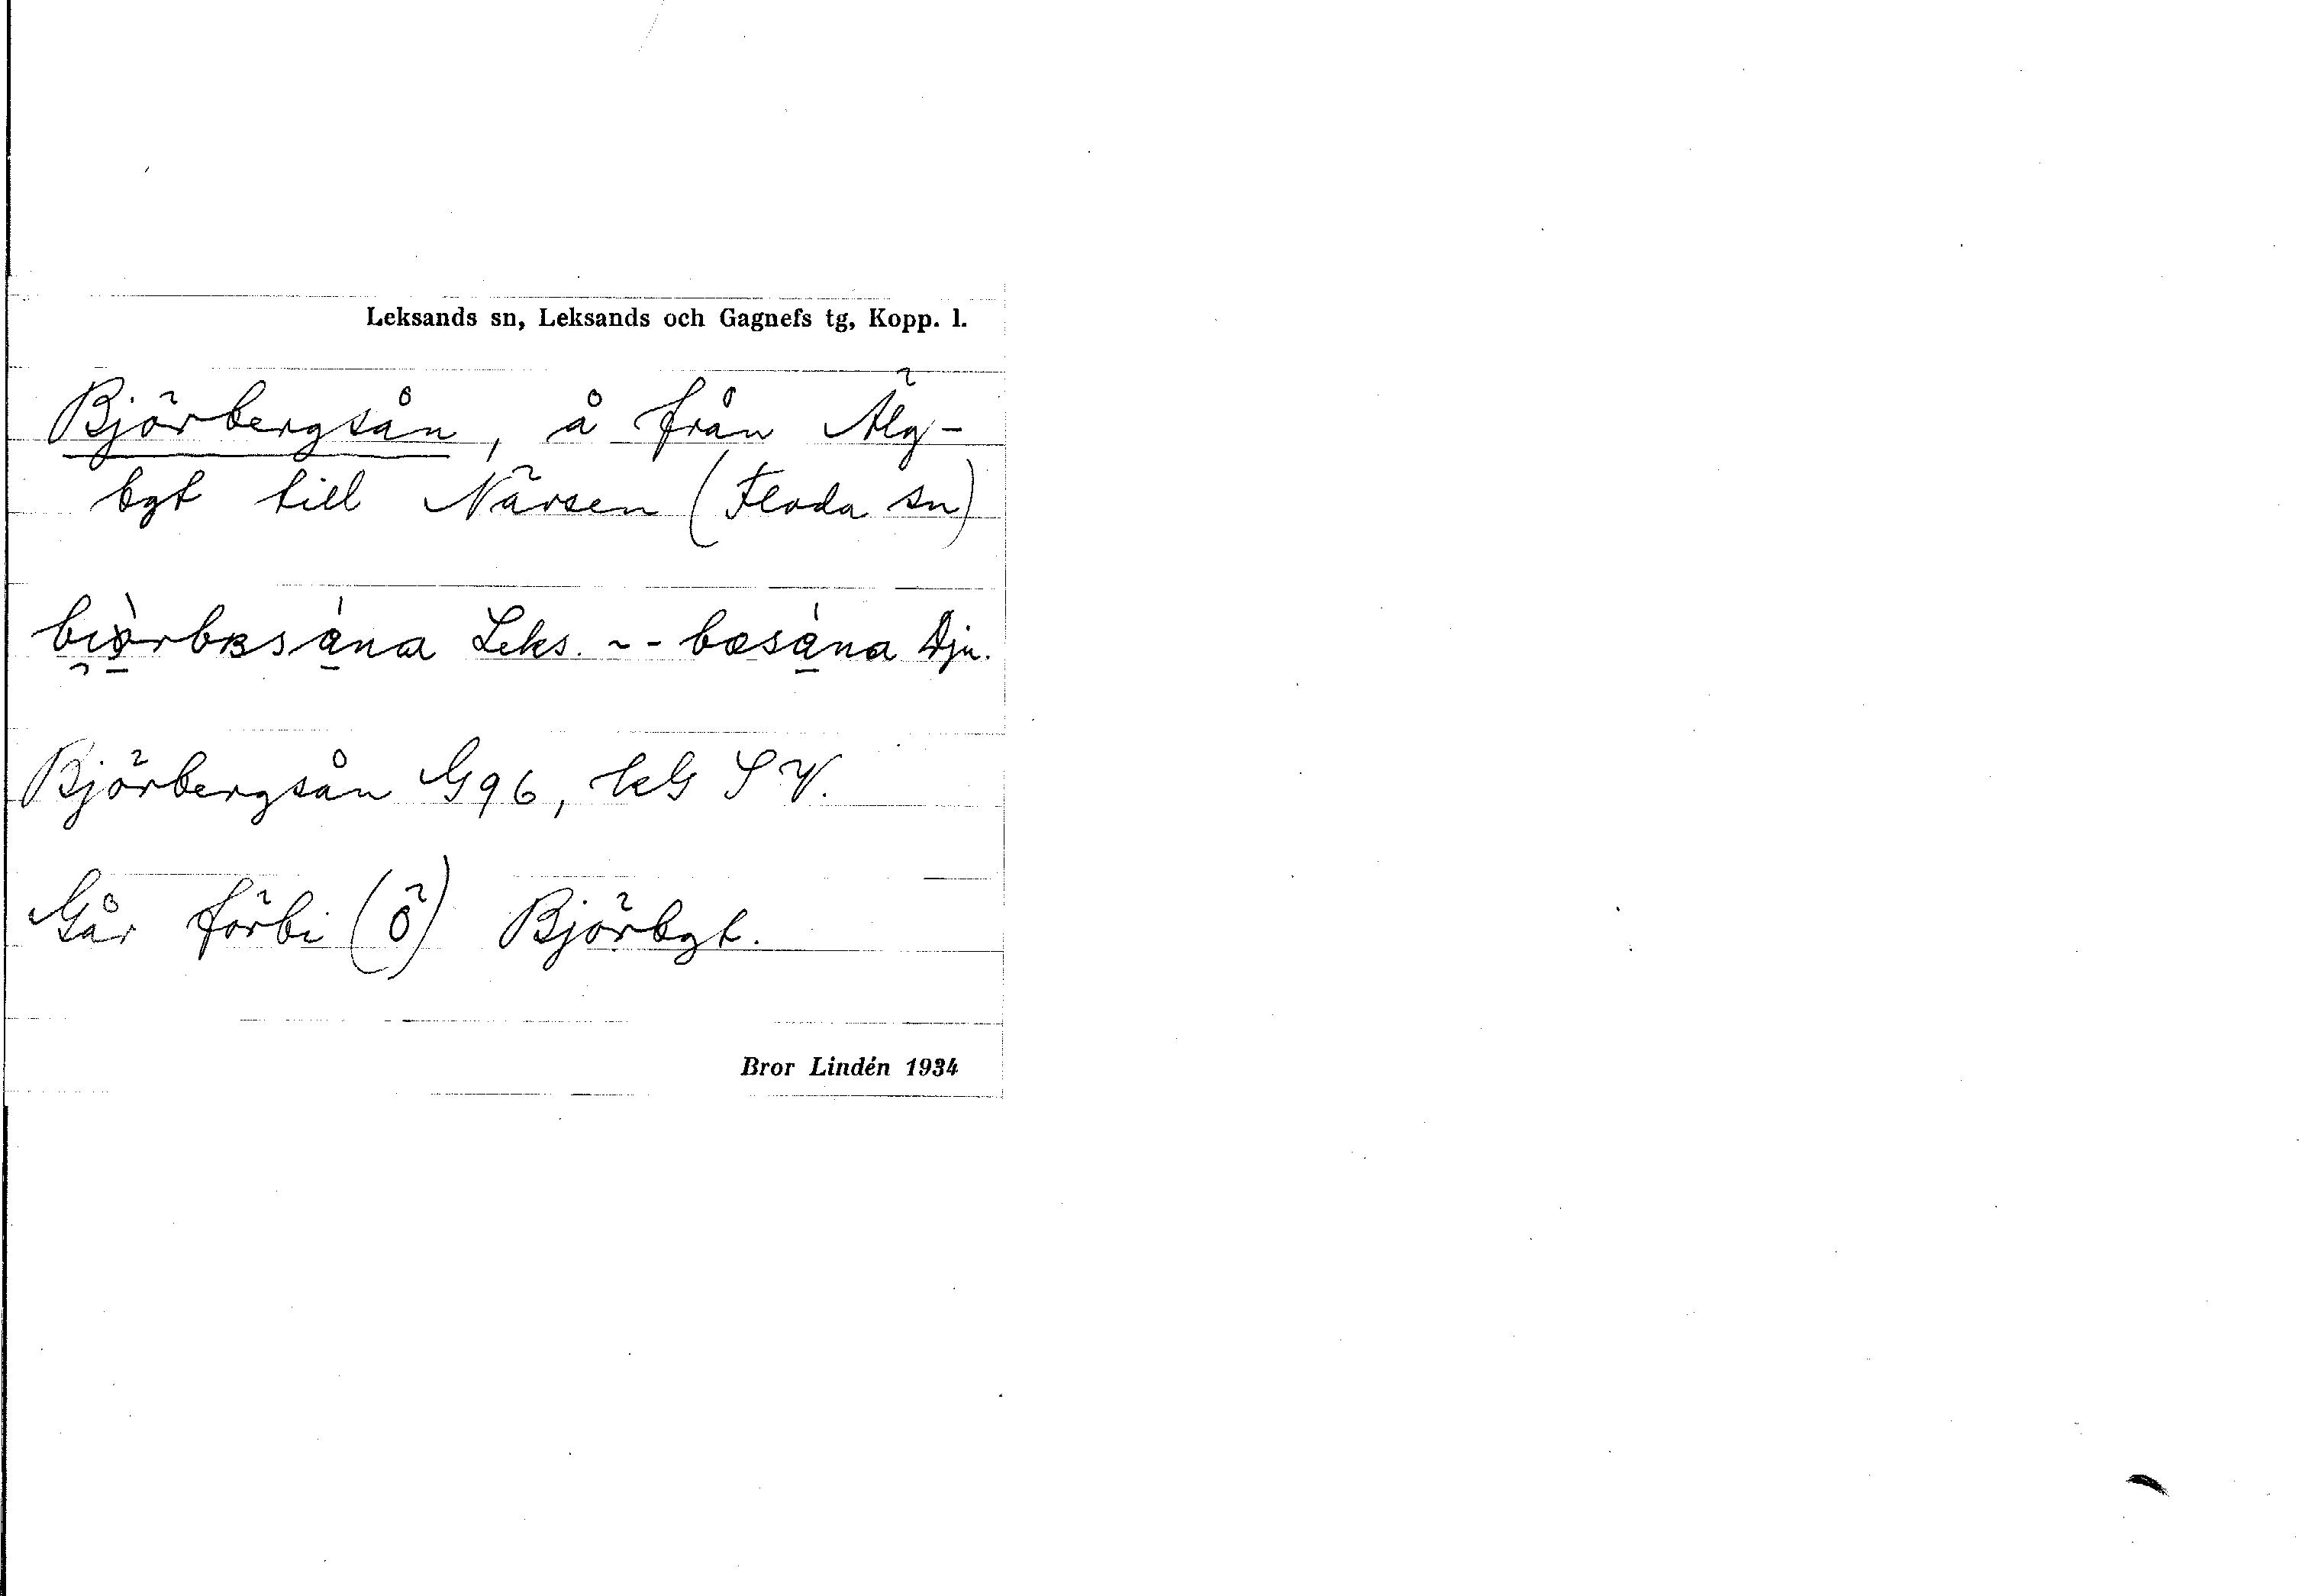 Leksands sn, Leksands och Gagnefs tg, Kopp. l.
Björbergsån, å från Älg-
bgt till Närsen (Floda sn)
Leks. ~ - Dju.
Björbergsån G96, lG SV.
Går förbi (Ö) Björbgt.
Bror Lindén 1934